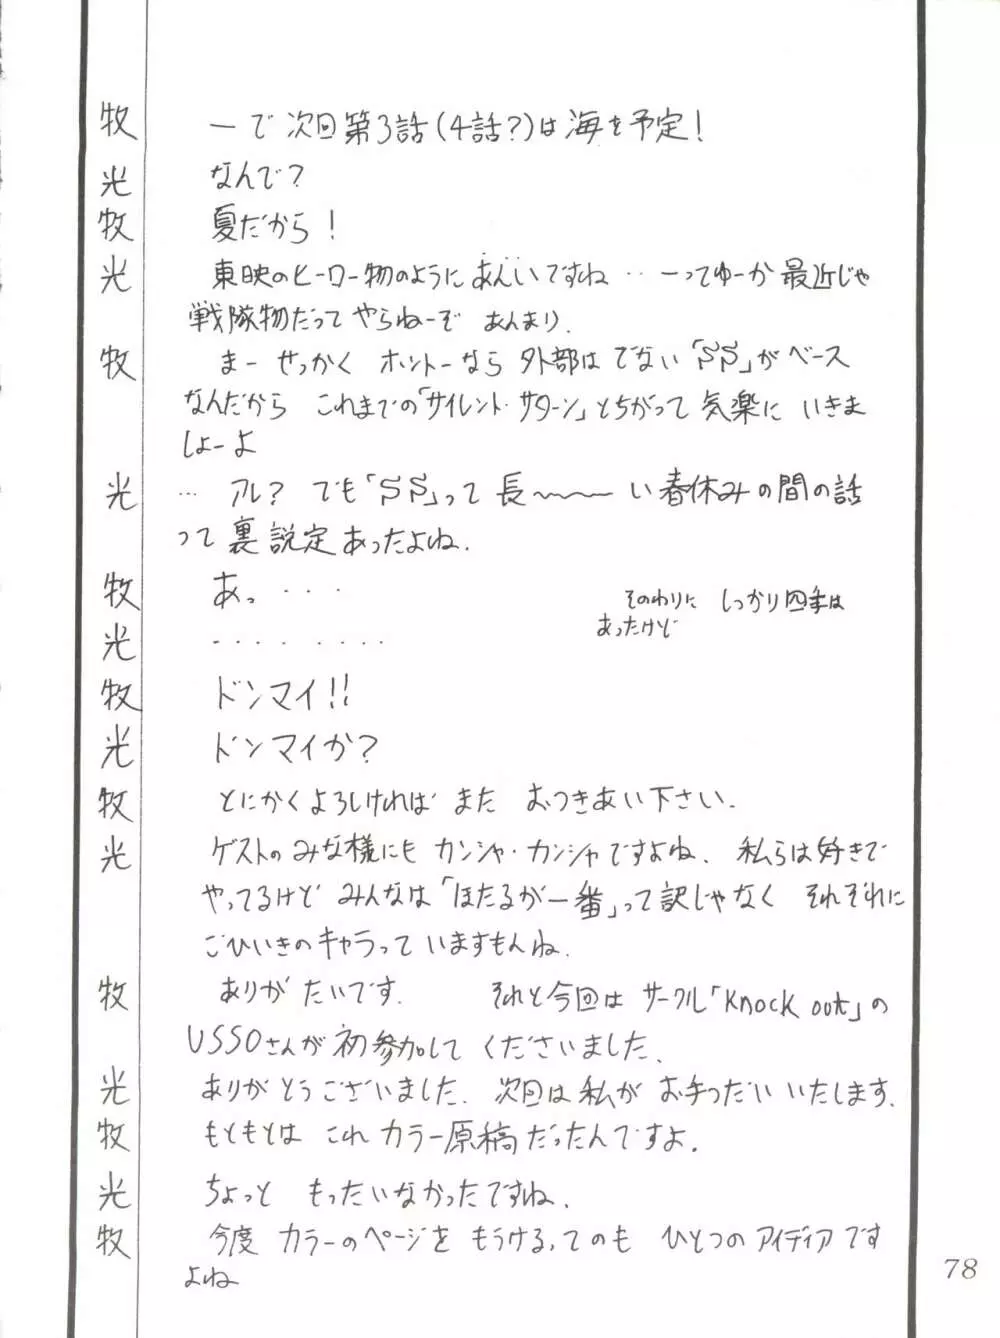 牧 ーで 次回第3話(4話?)は海を予定!
光 なんで?
牧 夏だから!
光 東映のヒーロー物のようにあんいですね‥ーってゆーか 最近じゃ
戦隊物だって やらねーぞ あんまり.
牧 まー せっかく ホントーなら 外部はでない「SS」がベース
なんだから これまでの「サイレント・サターン」とちがって 気楽に いきま
しょーよ
光 … アレ? でも「SS」って 長〜〜〜い春休みの間の話
って 裏設定あったよね.
牧 あっ・・・
そのわりに しっかり四季は
あったけど
光 ・・・・ ・・・・
牧 ドンマイ!!
光 ドンマイか?
牧 とにかくよろしければ また おつきあい下さい.
光 ゲストのみな様にも カンシャ・カンシャですよね. 私らは好きで
やってるけど みんなは「ほたるが一番」って訳じゃなく それぞれに
ごひいきのキャラって いますもんね.
牧 ありがたいです. それと今回は サークル「Knock out」の
USSOさんが初参加して くださいました.
光 ありがとうございました. 次回は私が お手つだい いたします.
牧 もともとは これ カラー原稿だったんですよ.
光 ちょっと もったいなかったですね.
牧 今度 カラーのページを もうける,てのも ひとつの アイディアです
よね
78